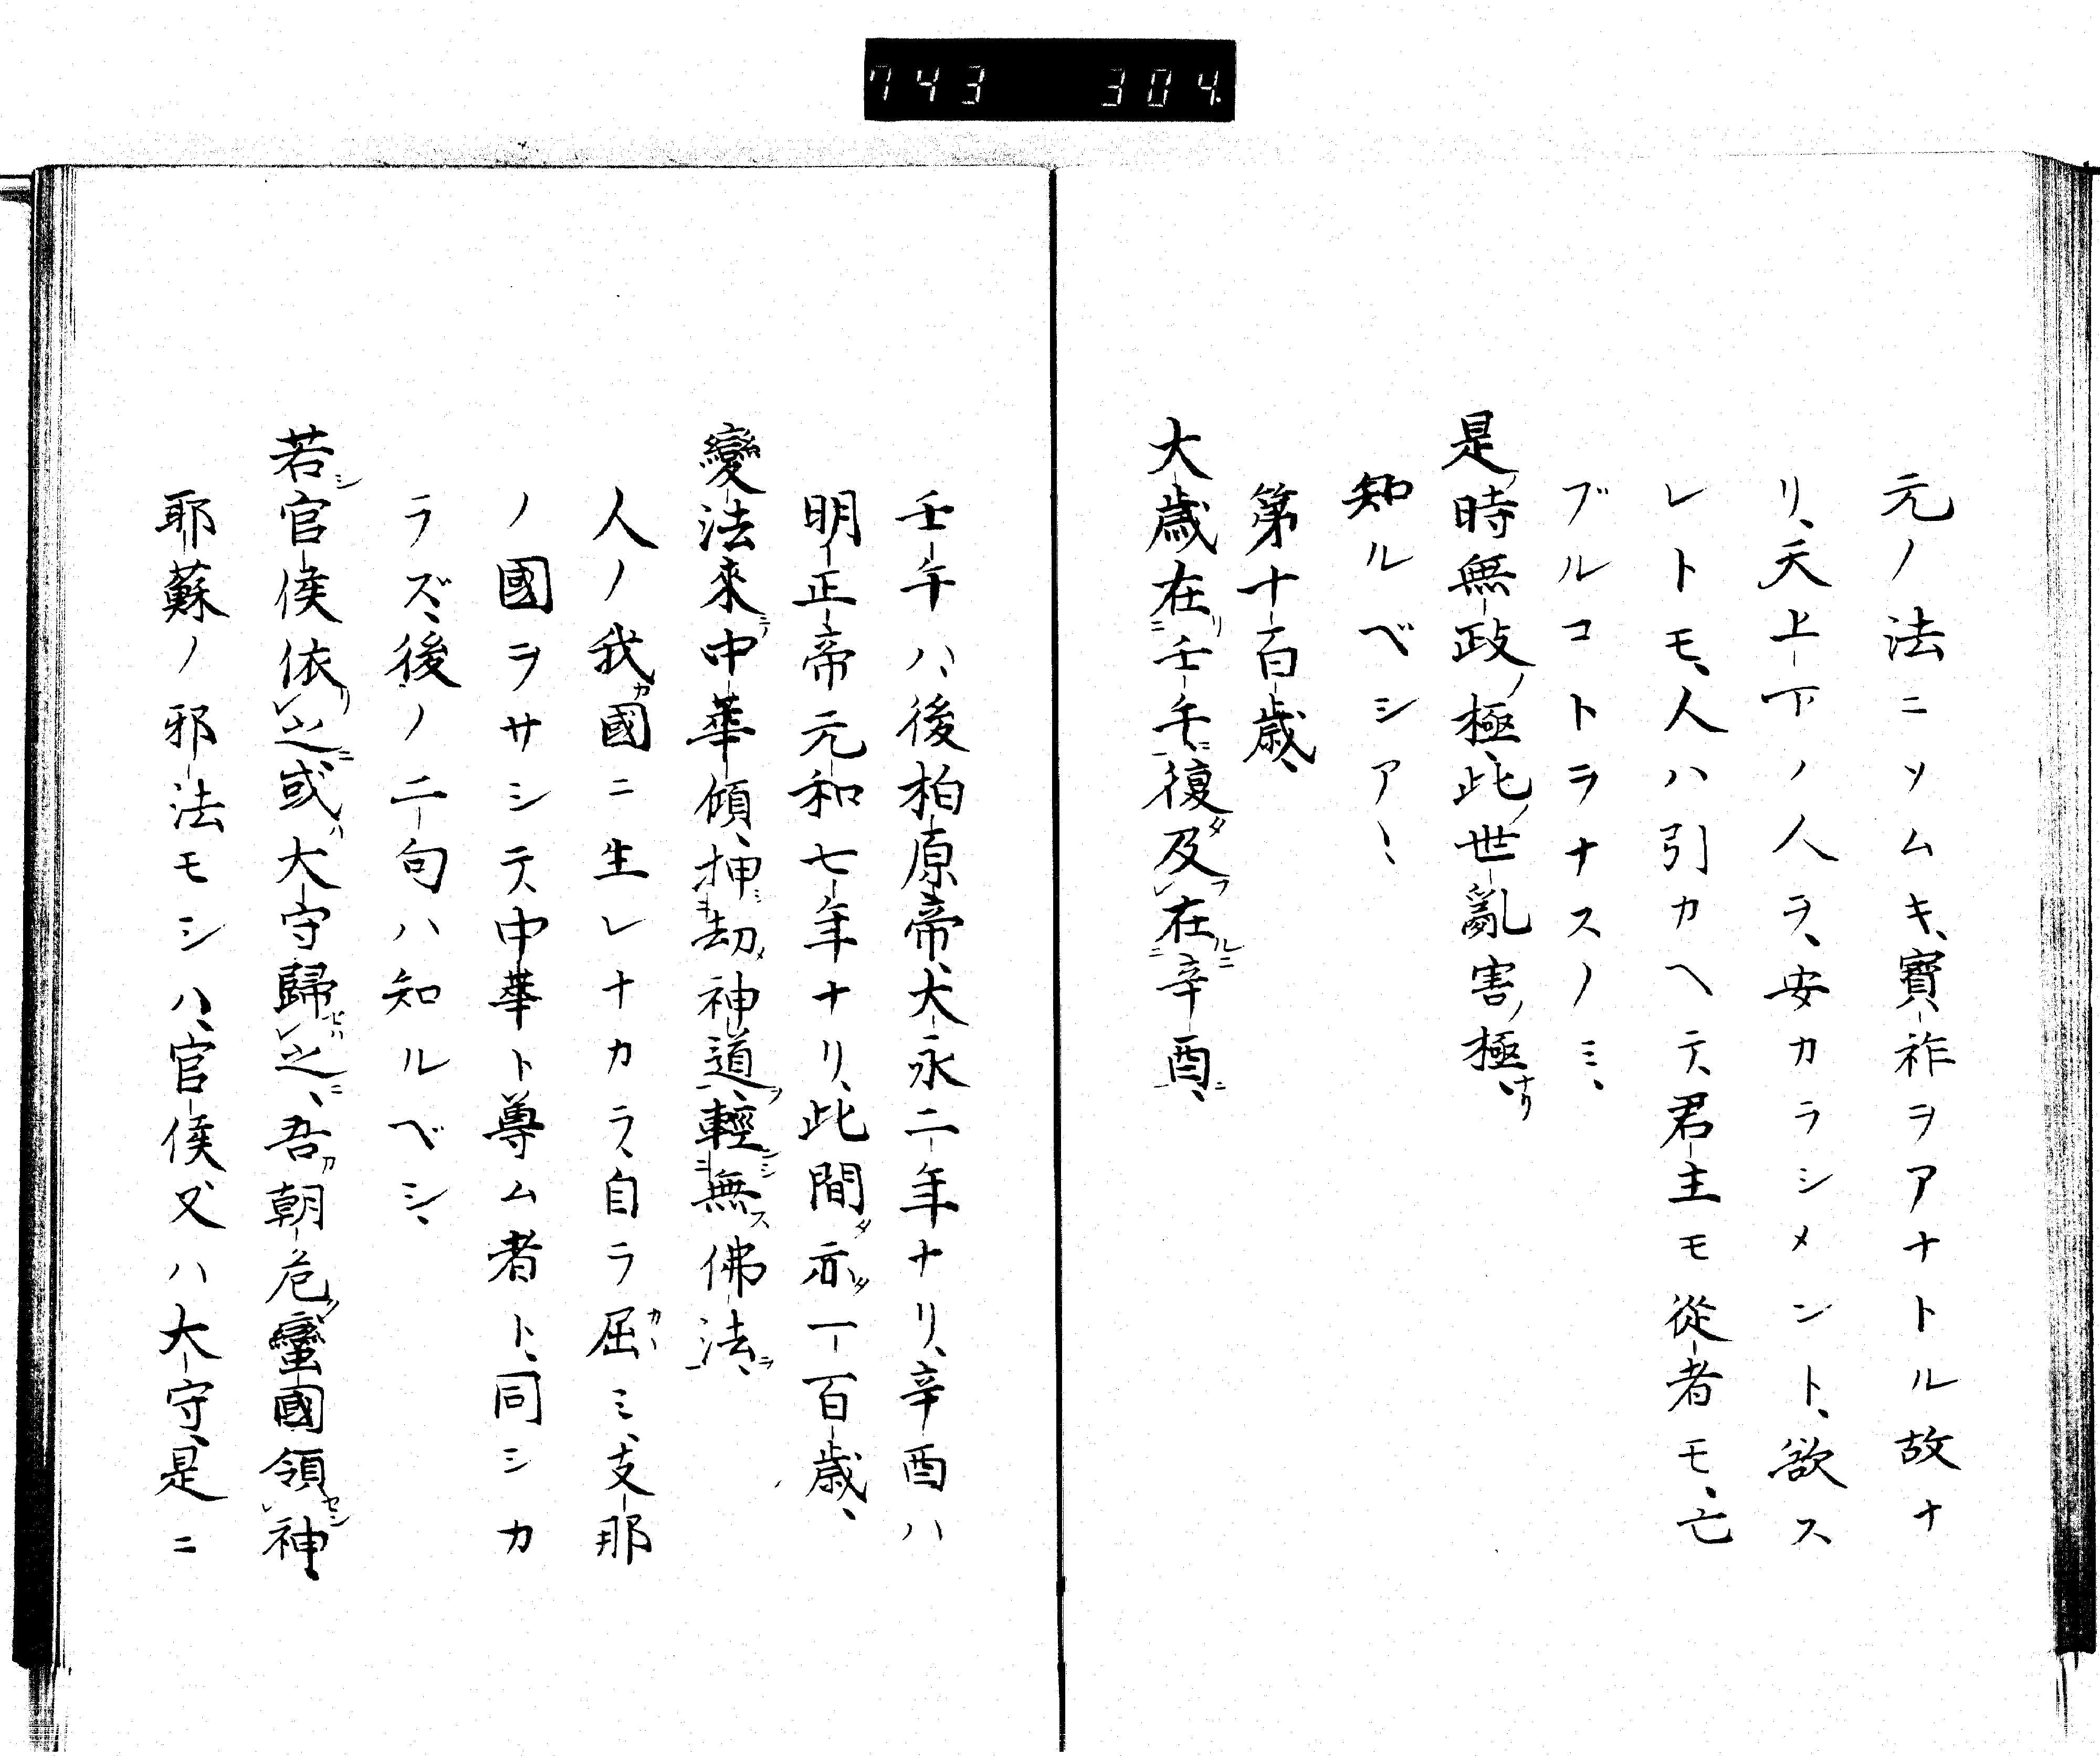 743 304
元ノ法ニソムキ、寶祚ヲアナトル故ナ
リ、天上下ノ人ヲ、安カラシメント、欲ス
レトモ、人ハ引カヘテ、君主モ從者モ、亡
ブルコトヲナスノミ、
是時無政極、此世亂害極、
知ルベシアヽ
第十百歳、
大歳在壬午、復及在辛酉、
壬午ハ、後柏原帝、大永二年ナリ、辛酉ハ
明正帝元和七年ナリ、此間亦一百歳、
變法來中華傾、押劫神道、輕無佛法、
人ノ我國ニ生レナカラ、自ラ屈ミ、支那
ノ國ヲサシテ、中華ト尊ム者ト、同シカ
ラズ、後ノ二句ハ知ルベシ、
若官侯依之、或大守歸之、吾朝危蠻國領神、
耶蘇ノ邪法モシハ、官侯又ハ大守、是ニ